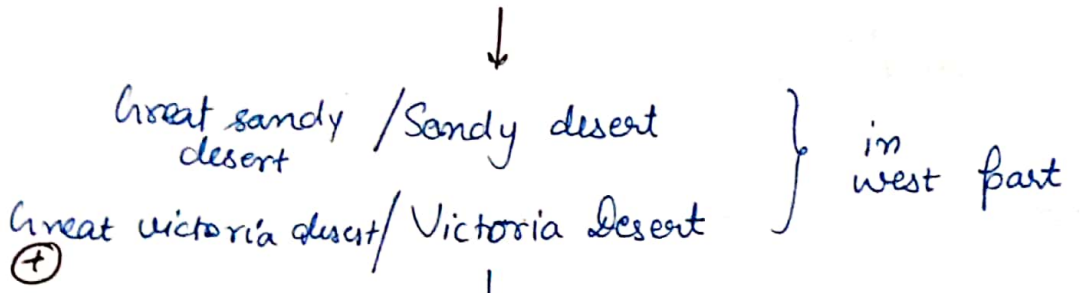 Great sandy desert / Sandy desert
Great victoria desert / Victoria Desert
+
} in west part